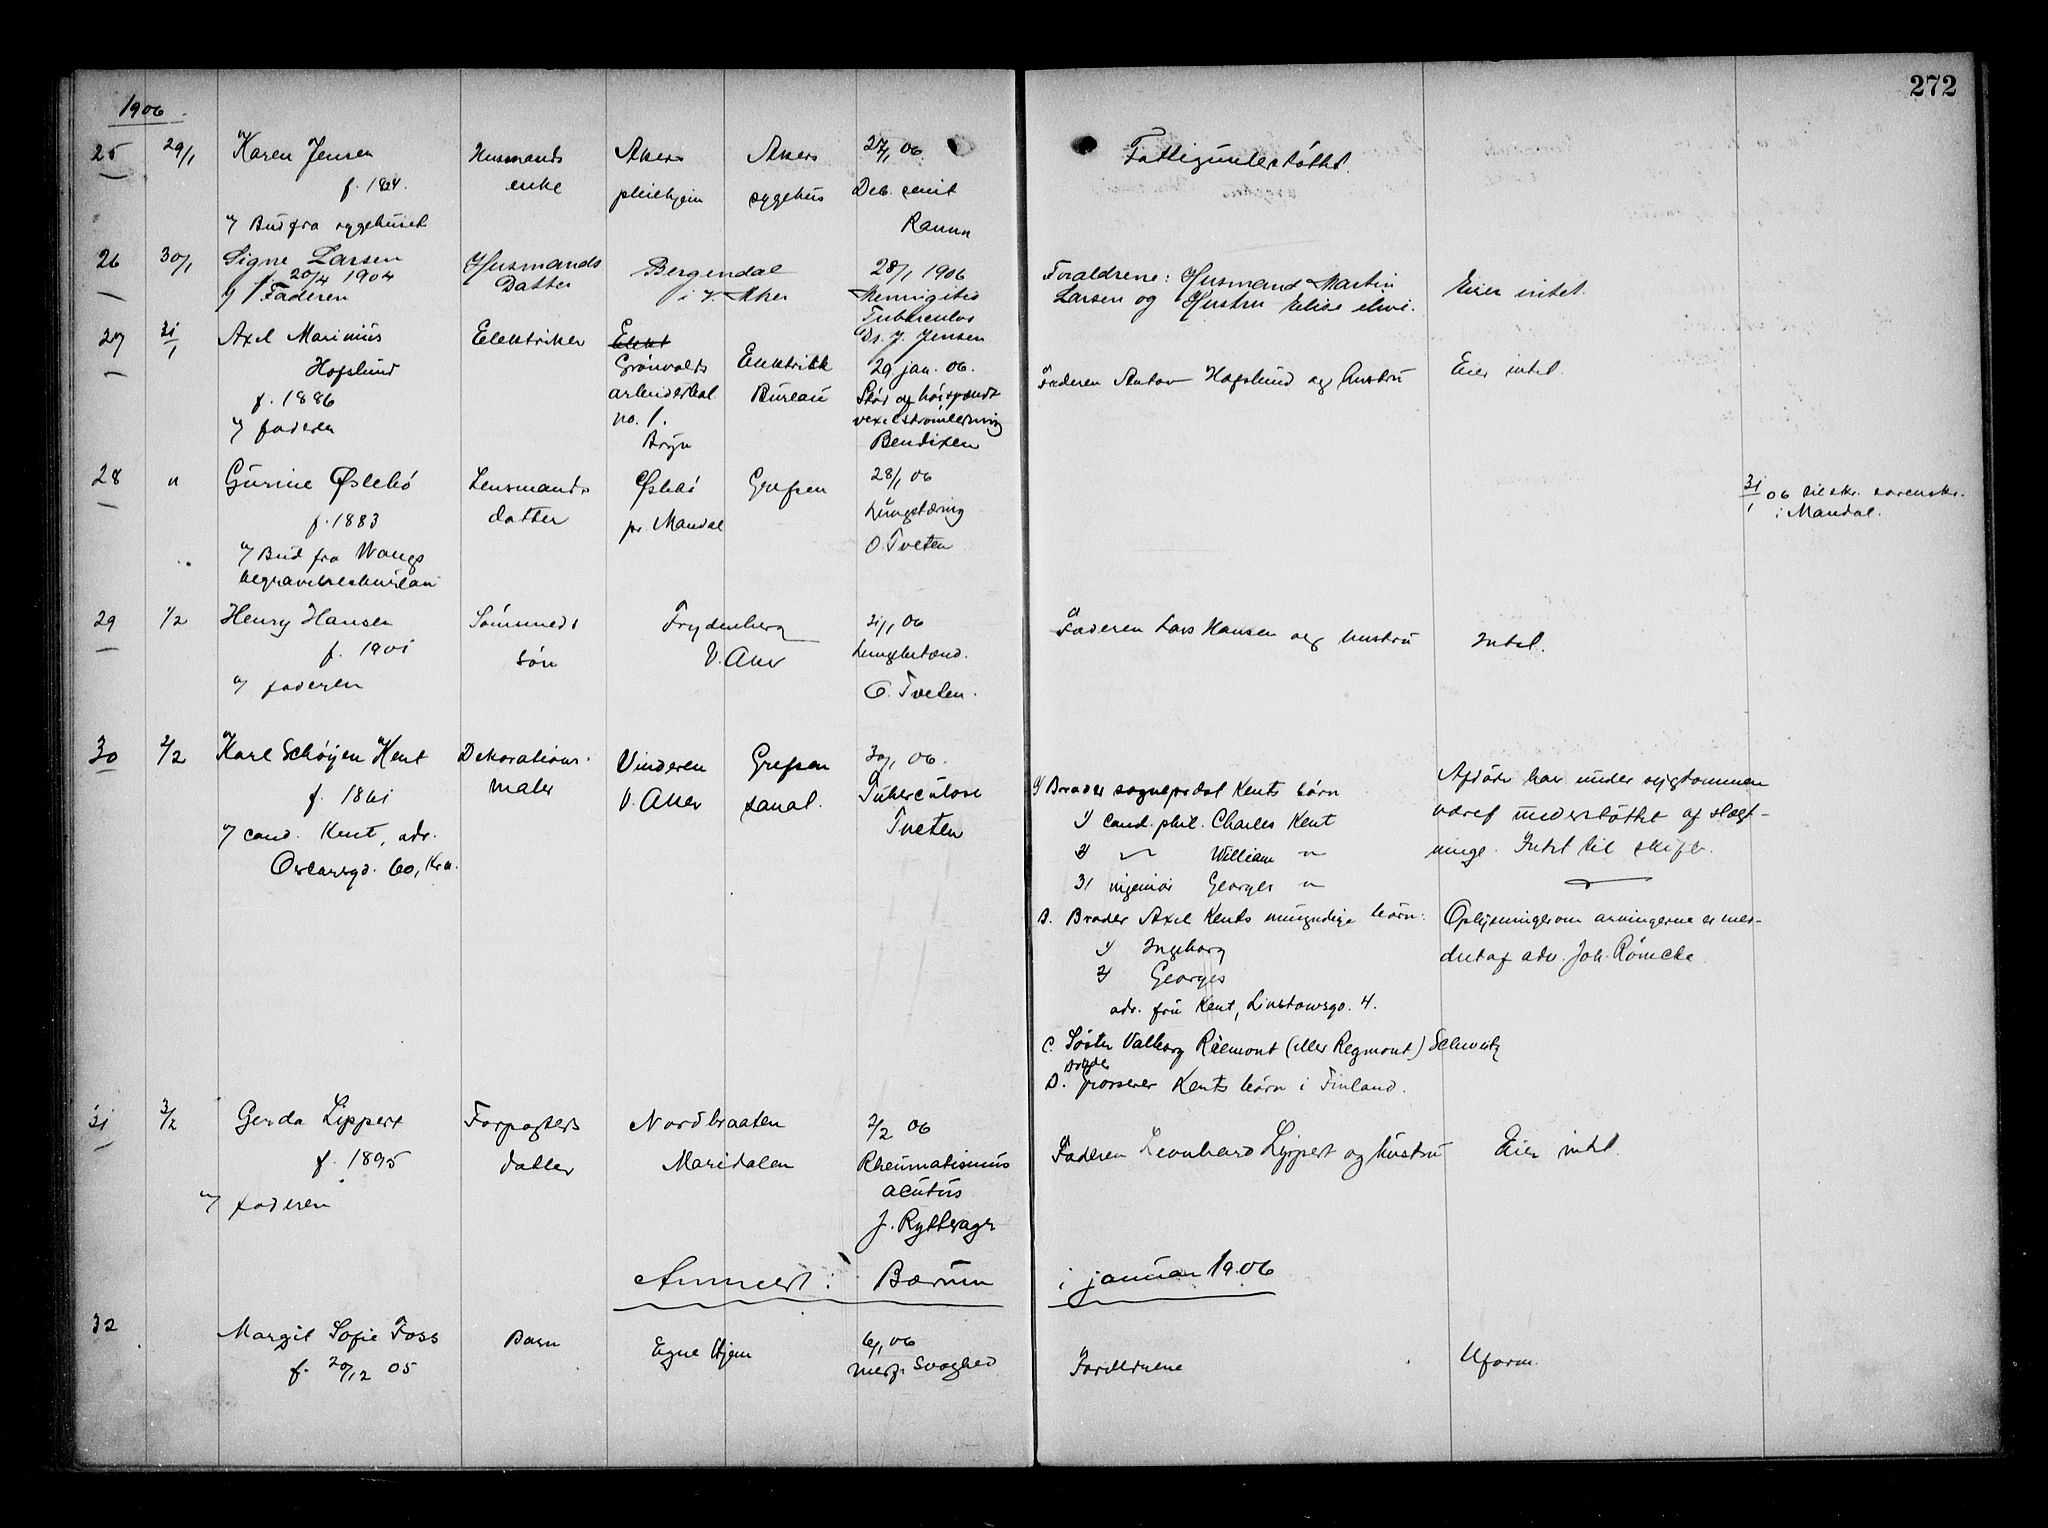 272
1906
25 29/1 Karen Jensen Husmands Akers Akers 27/1 06 Fattigunderstöttet.
f. 1824. enke pleiehjem sygehus Deb. senil
v/ Bud fra sygehuset Ravnn
26 30/1 Signe Larsen Husmands Bergendal 28/1 1906 Foraldrene: Husmand Martin Eier intet.
f. 20/4 1904 Datter i V. Aker Meningitis Larsen og Hustru Elise
v/ Faderen Tuberculos
27 31/1 Axel Marinius Elektriker Dr. J. Jensen
Hofslund Grönvolds Elektrisk 29 jan. 06. Faderen Anton Hofslund og hustru Eier intet.
f. 1886 arbeiderbol. Bureau Stöd af höispændt
v/ faderen no. 1. vexelströmledning
Bryn Bendixen
28 " Gurine Øslebö Lensmands Øslebö Grefsen 28/1 06 31/1 06 til skr. sorenskr.
f. 1883 datter pr Mandal Lungetæring i Mandal.
v/ Bud fra Wangs O. Tveten
begravelsesbureau
29 1/2 Henry Hansen Sömmeds Frydenberg 31/1 06 Faderen Lars Hansen og hustru Intet.
f. 1901 sön V. Aker Lungebetænd.
v/ faderen O. Tveten.
30 2/2 Karl Schöyen Kent Dekorations- Vinderen Grefsen 30/1 06.
f. 1861 maler V. Aker sanat. Tuberculose
v/ cand. Kent, adr. Tveten
Oscarsgd. 60, Kra.
Broder sogneprest Kents börn
1) Cand. phil. Charles Kent
2) " William "
3) ingeniör Georges "
B. Broder Axel Kents umyndige börn:
1) Ingeborg
2) Georges
adr. fru Kent, Linstowsgd. 4.
C. Söster Valborg Réemont (eller Regmont) Schweitz
Broder
D. Grosserer Kents börn i Finland.
Afdöde har under sygdommen
været understöttet af slægt-
ninge. Intet til skifte.
Oplysninger om arvingerne er med-
delt af adv. Joh. Römcke
31 3/2 Gerda Lippert Forpagters Nordbraaten 2/2 06
f. 1895 datter Maridalen Rheumatismus Faderen Leonhard Lippert og hustru Eier intet.
v/ faderen acutus
J. Ryttrager
Anmeldt i Bærum i januar 1906
32 Margit Sofie Foss Barn Egne Hjem 6/1 06
f. 20/12 05 medf. Svaghed Forældrene Uform.